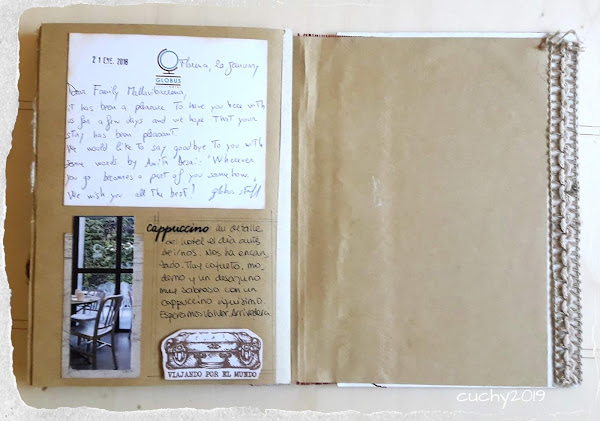 21 ENE. 2018
GLOBUS
Florence, 20 January
Dear Family
it has been a pleasure to have you here with
us for a few days and we hope that your
stay has been pleasant.
We would like to say goodbye to you with
some words by Anita Desai: "Wherever
you go becomes a part of you somehow".
We wish you all the best! globus staff
cappuccino Un detalle
del hotel el día antes
de irnos. Nos ha encan
tado. Muy coqueto, mo_
derno y un desayuno
muy sabroso con un
cappuccino riquísimo.
Esperamos volver. Arrivederci
VIAJANDO POR EL MUNDO
cuchy2019